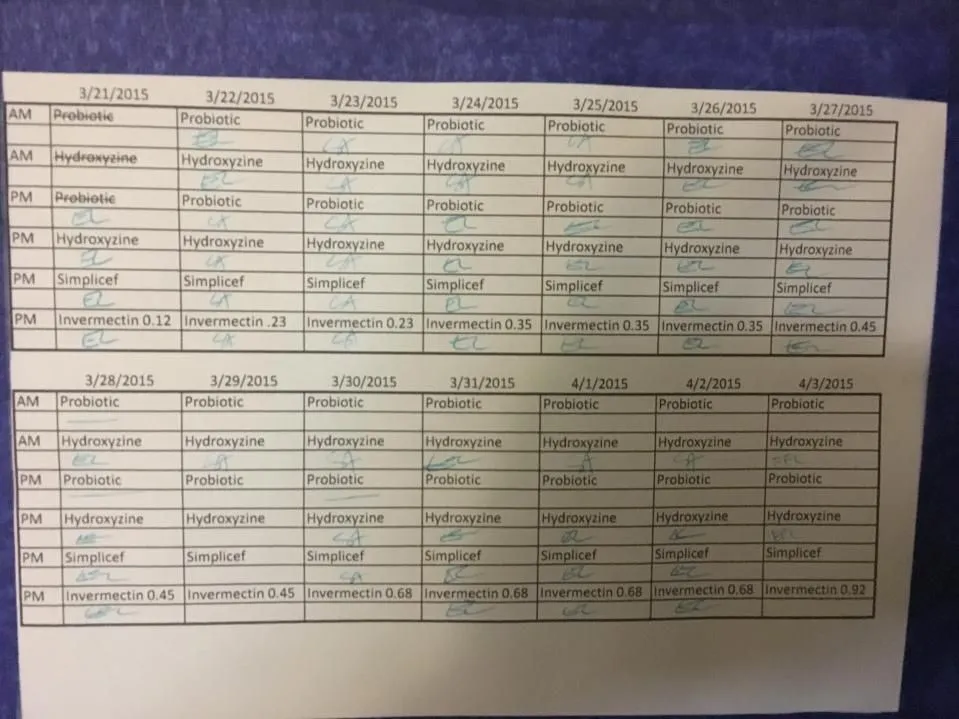 3/21/2015 3/22/2015 3/23/2015 3/24/2015 3/25/2015 3/26/2015 3/27/2015
AM Probiotic Probiotic Probiotic Probiotic Probiotic Probiotic Probiotic
EL CA CA CA EL EL
AM Hydroxyzine Hydroxyzine Hydroxyzine Hydroxyzine Hydroxyzine Hydroxyzine Hydroxyzine
EL CA CA CA EL
PM Probiotic Probiotic Probiotic Probiotic Probiotic Probiotic Probiotic
EL CA CA EL EL EL EL
PM Hydroxyzine Hydroxyzine Hydroxyzine Hydroxyzine Hydroxyzine Hydroxyzine Hydroxyzine
EL CA CA EL EL EL EL
PM Simplicef Simplicef Simplicef Simplicef Simplicef Simplicef Simplicef
EL CA CA EL EL EL EL
PM Invermectin 0.12 Invermectin .23 Invermectin 0.23 Invermectin 0.35 Invermectin 0.35 Invermectin 0.35 Invermectin 0.45
EL CA CA EL EL EL
3/28/2015 3/29/2015 3/30/2015 3/31/2015 4/1/2015 4/2/2015 4/3/2015
AM Probiotic Probiotic Probiotic Probiotic Probiotic Probiotic Probiotic
AM Hydroxyzine Hydroxyzine Hydroxyzine Hydroxyzine Hydroxyzine Hydroxyzine Hydroxyzine
EL CA CA EL CA EL
PM Probiotic Probiotic Probiotic Probiotic Probiotic Probiotic Probiotic
PM Hydroxyzine Hydroxyzine Hydroxyzine Hydroxyzine Hydroxyzine Hydroxyzine Hydroxyzine
CA EL EL
PM Simplicef Simplicef Simplicef Simplicef Simplicef Simplicef Simplicef
EL CA EL EL EL
PM Invermectin 0.45 Invermectin 0.45 Invermectin 0.68 Invermectin 0.68 Invermectin 0.68 Invermectin 0.68 Invermectin 0.92
EL EL EL EL